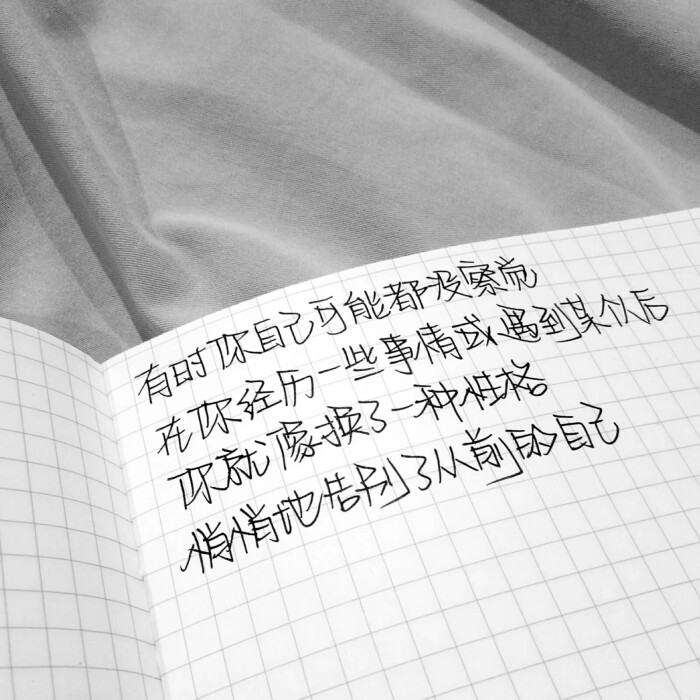 有时你自己可能都没察觉
在你经历一些事情或遇到某个人后
你就像换了一种性格。
悄悄地告别了从前的自己